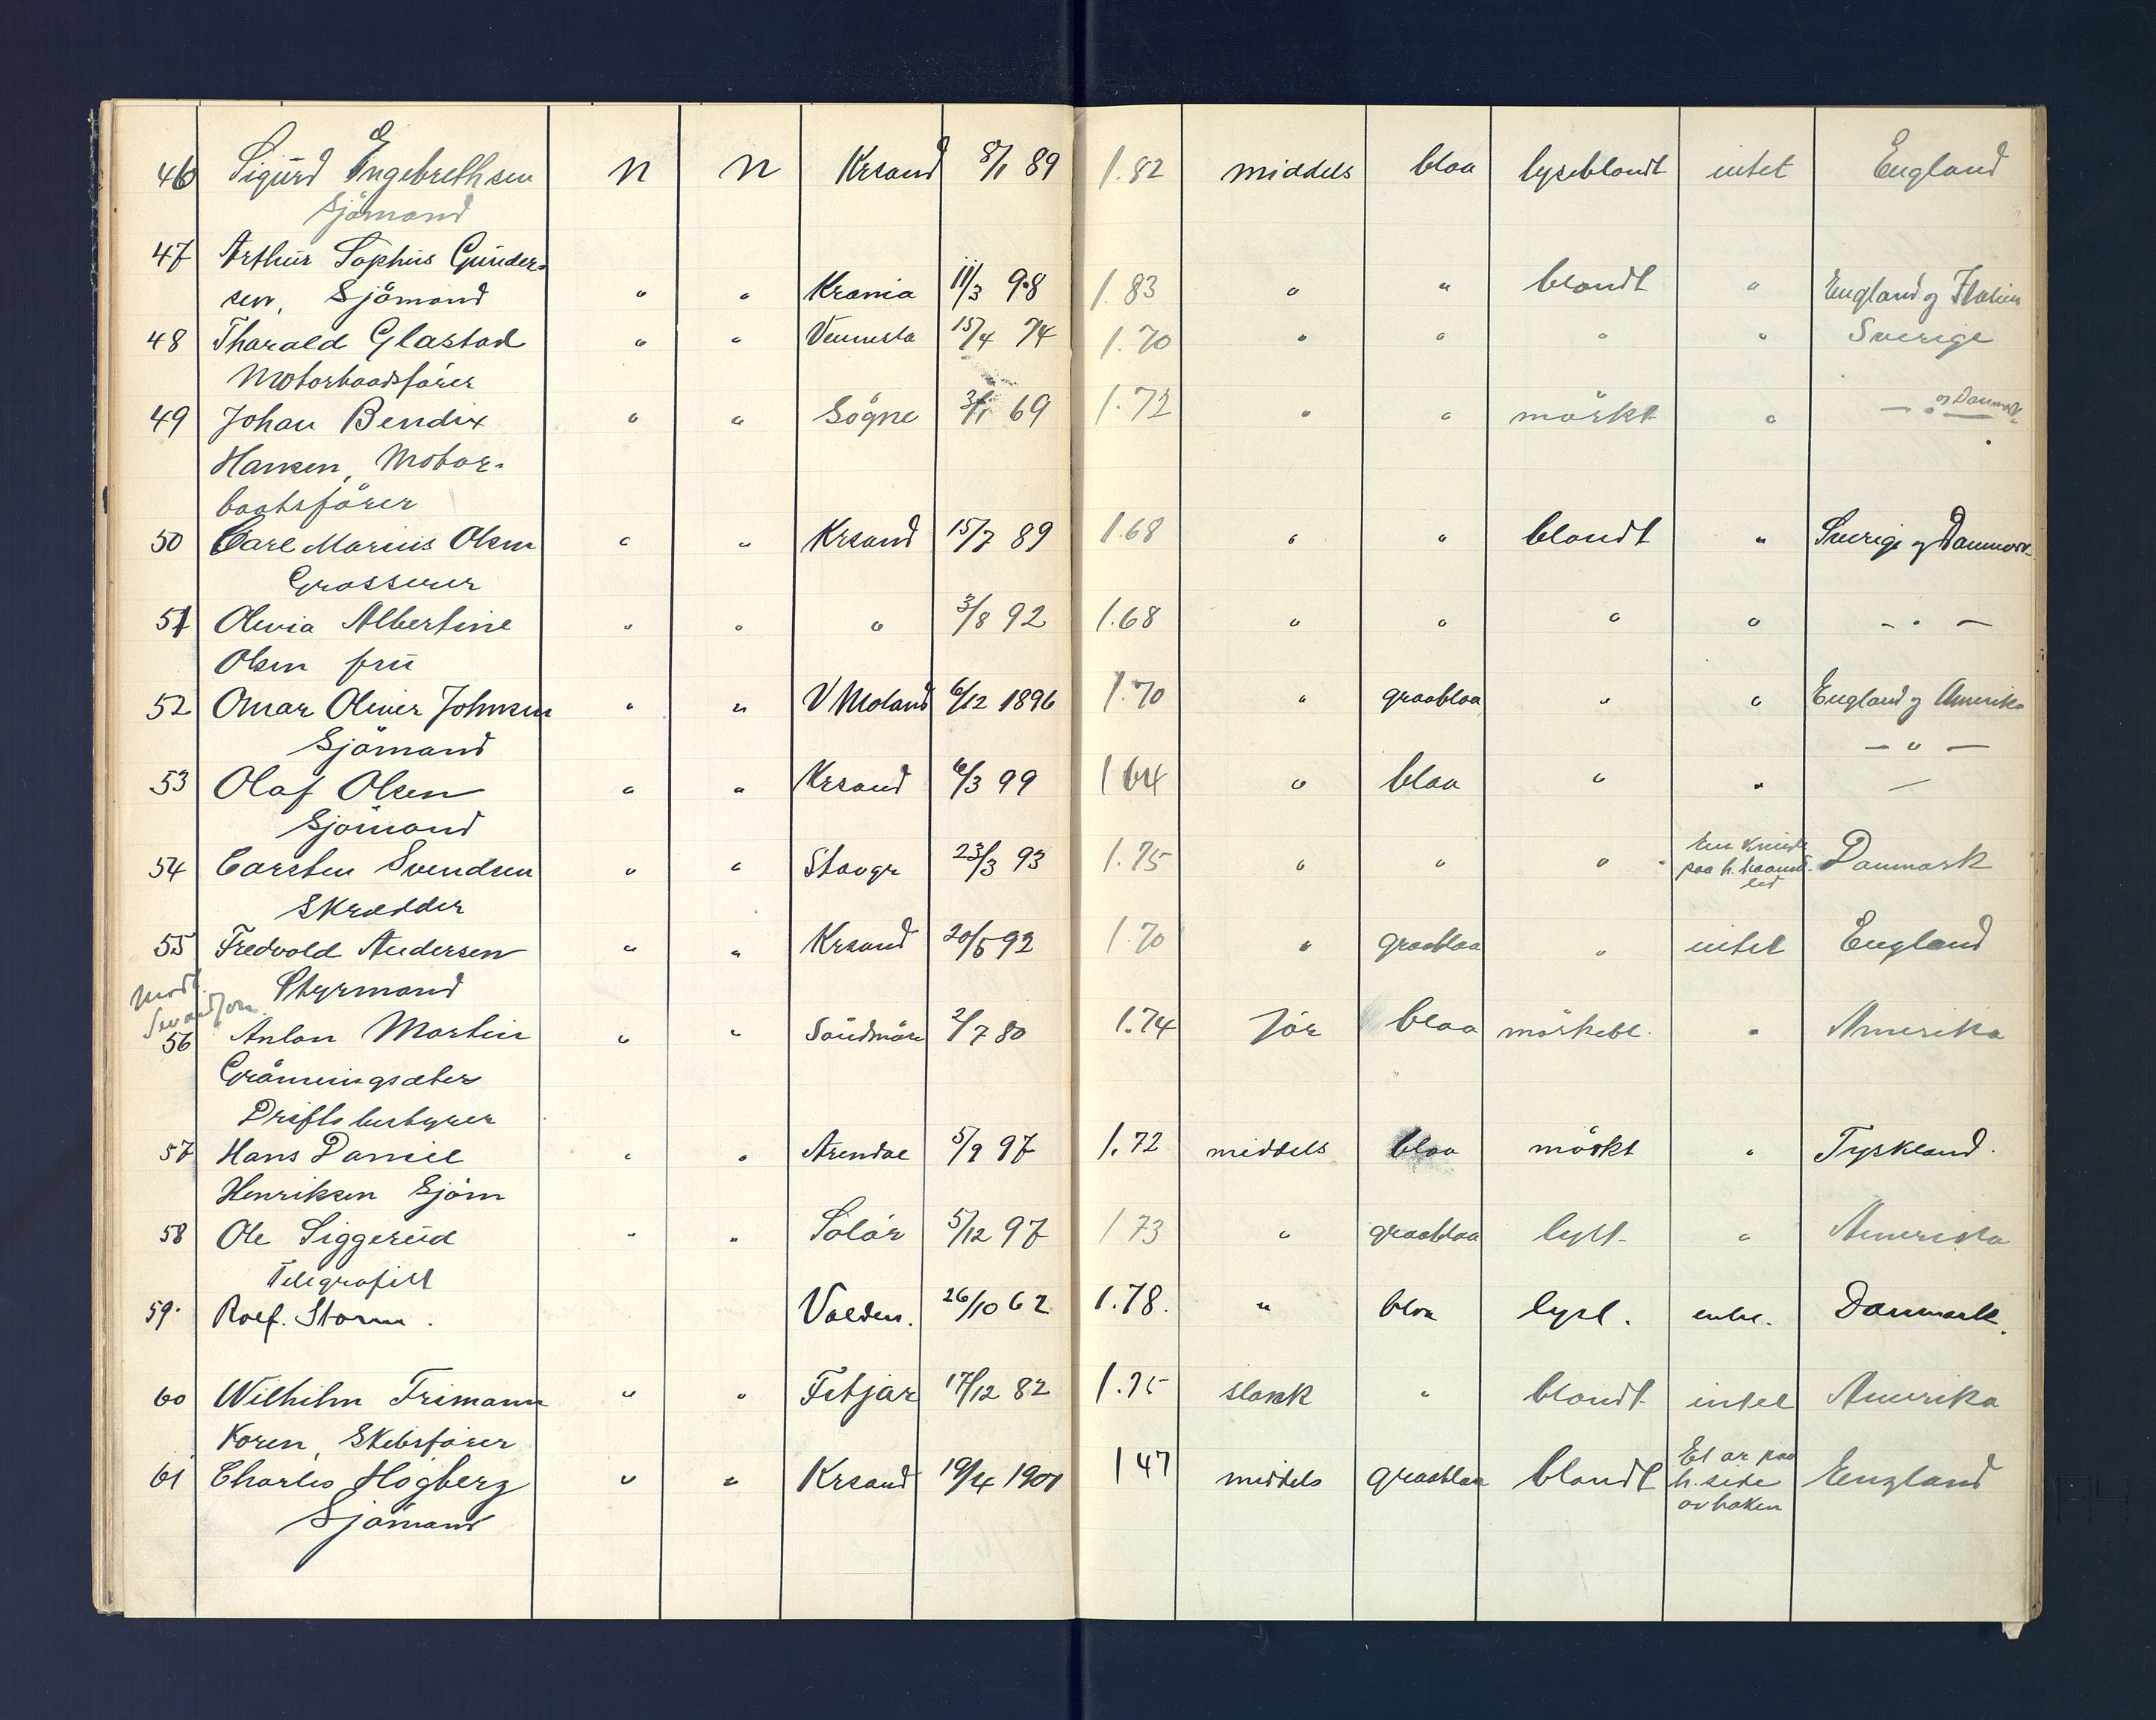 46 Sigurd Engebrethsen n n Krsand 8/1 89 1.82 middels blaa lyseblondt intet England
Sjömand
47 Arthur Sophus Gunder-
sen, Sjömand " " Krania 11/3 98 1.83 " " blondt " England og Italien
48 Tharald Glastad " " Vennesla 15/4 74 1.70 " " " " Sverige
Motorbaadsförer
49 Johan Bendix " " Sögne 3/1 69 1.72 " " mörkt " — " — og Danmark
Hansen, Motor-
baatsförer
50 Carl Marius Olsen " " Krsand 15/7 89 1.68 " " blondt " Sverige og Danmark
Grosserer
51 Olivia Albertine " " " 3/8 92 1.68 " " " " — " —
Olsen fru
52 Omar Oliver Johnsen " " V Moland 6/12 1896 1.70 " graablaa " " England og Amerika
Sjömand — " —
53 Olaf Olsen " " Krsand 6/3 99 1 64 " blaa " " —
Sjömand
54 Carsten Svendsen " " Stavgr 23/3 93 1.75 " " " " En Knude paa h. haand- led Danmark
Skrædder
55 Fredvold Andersen " " Krsand 20/5 92 1.70 " graablaa " intet England
Styrmand
56 Anton Martin " " Söndmöre 2/7 80 1.74 för blaa mörkebl. " Amerika
Grönningsæter
Driftsbestyrer
57 Hans Daniel " " Arendal 5/9 97 1.72 middels blaa mörkt " Tyskland.
Henriksen Sjöm
58 Ole Siggerud " " Solör 5/12 97 1 73 " graablaa lyst " Amerika
Telegrafist
59. Rolf. Storm. Valders. 26/10 62 1.78. " blaa lyst. intet. Danmark.
60 Wilhelm Frimann " " Fitjar 17/12 82 1.75 slank " blondt intet Amerika
Koren, Skibsförer
61 Charles Högberg " " Krsand 19/4 1901 1 47 middels graablaa blondt Et ar paa h. side av haken England
Sjömand